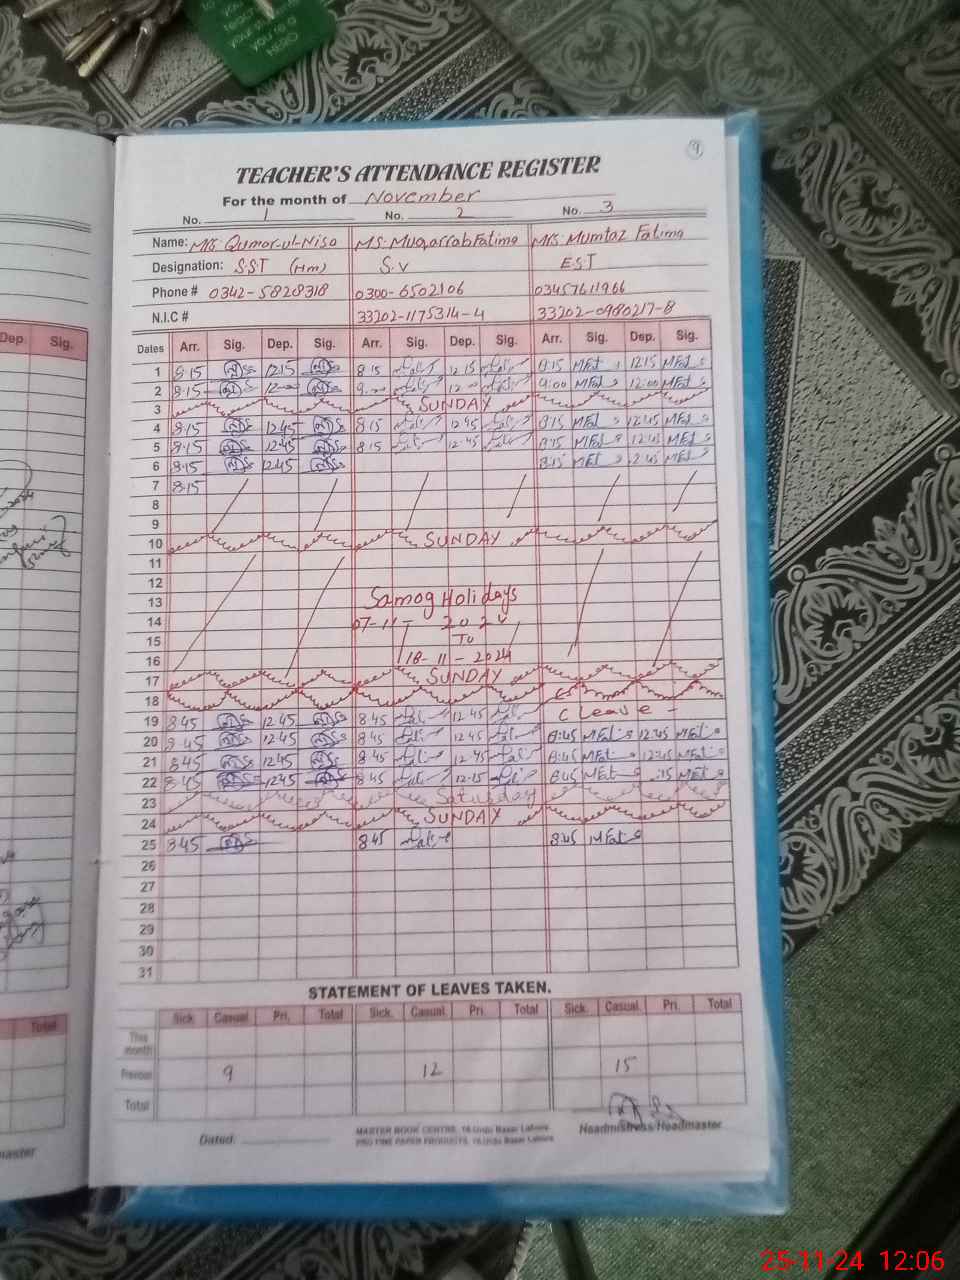 9
TEACHER'S ATTENDANCE REGISTER
For the month of November
No. 1 No. 2 No. 3
Name: Mrs. Qumar-ul-Nisa MS. Muqarrab Fatima Mrs. Mumtaz Fatima
Designation: S.S.T (Hm) S.V EST
Phone # 0342-5828318 0300-6502106 03457611966
N.I.C # 33202-1175314-4 33202-0980217-8
Dep. Sig.
Dates Arr. Sig. Dep. Sig. Arr. Sig. Dep. Sig. Arr. Sig. Dep. Sig.
1 8:15 12:15 8 15 12 15 8:15 MFat 12:15 MFat
2 8:15 12 9 12 9:00 MFat 12:00 MFat
3 SUNDAY
4 8:15 12:45 8 15 12 45 8:15 MFat 12:45 MFat
5 8:15 12:45 8 15 12 45 8:15 MFat 12:45 MFat
6 8:15 12:45 8:15 MFat 12:45 MFat
7 8:15
8
9
10 SUNDAY
11
12
13 Samog Holidays
14 07-11-2024
15 To
16 18-11-2024
17 SUNDAY
18
19 8 45 12 45 8 45 12 45 C Leave -
20 8:45 12 45 8 45 12 45 8:45 MFat 12:45 MFat
21 8:45 12 45 8 45 12 45 8:45 MFat 12:45 MFat
22 8:45 12 45 8 45 8:45 MFat MFat
23 Saturday
24 SUNDAY
25 8 45 8 45 8:45 MFat
26
27
28
29
30
31
STATEMENT OF LEAVES TAKEN.
Total
Sick. Casual Pri. Total Sick. Casual Pri. Total Sick. Casual Pri. Total
This month
Previous 9 12 15
Total
Dated:
MASTER BOOK CENTRE, 16.Urdu Bazar Lahore
PRO FINE PAPER PRODUCTS, 16.Urdu Bazar Lahore
Headmistress/Headmaster
25-11-24 12:06